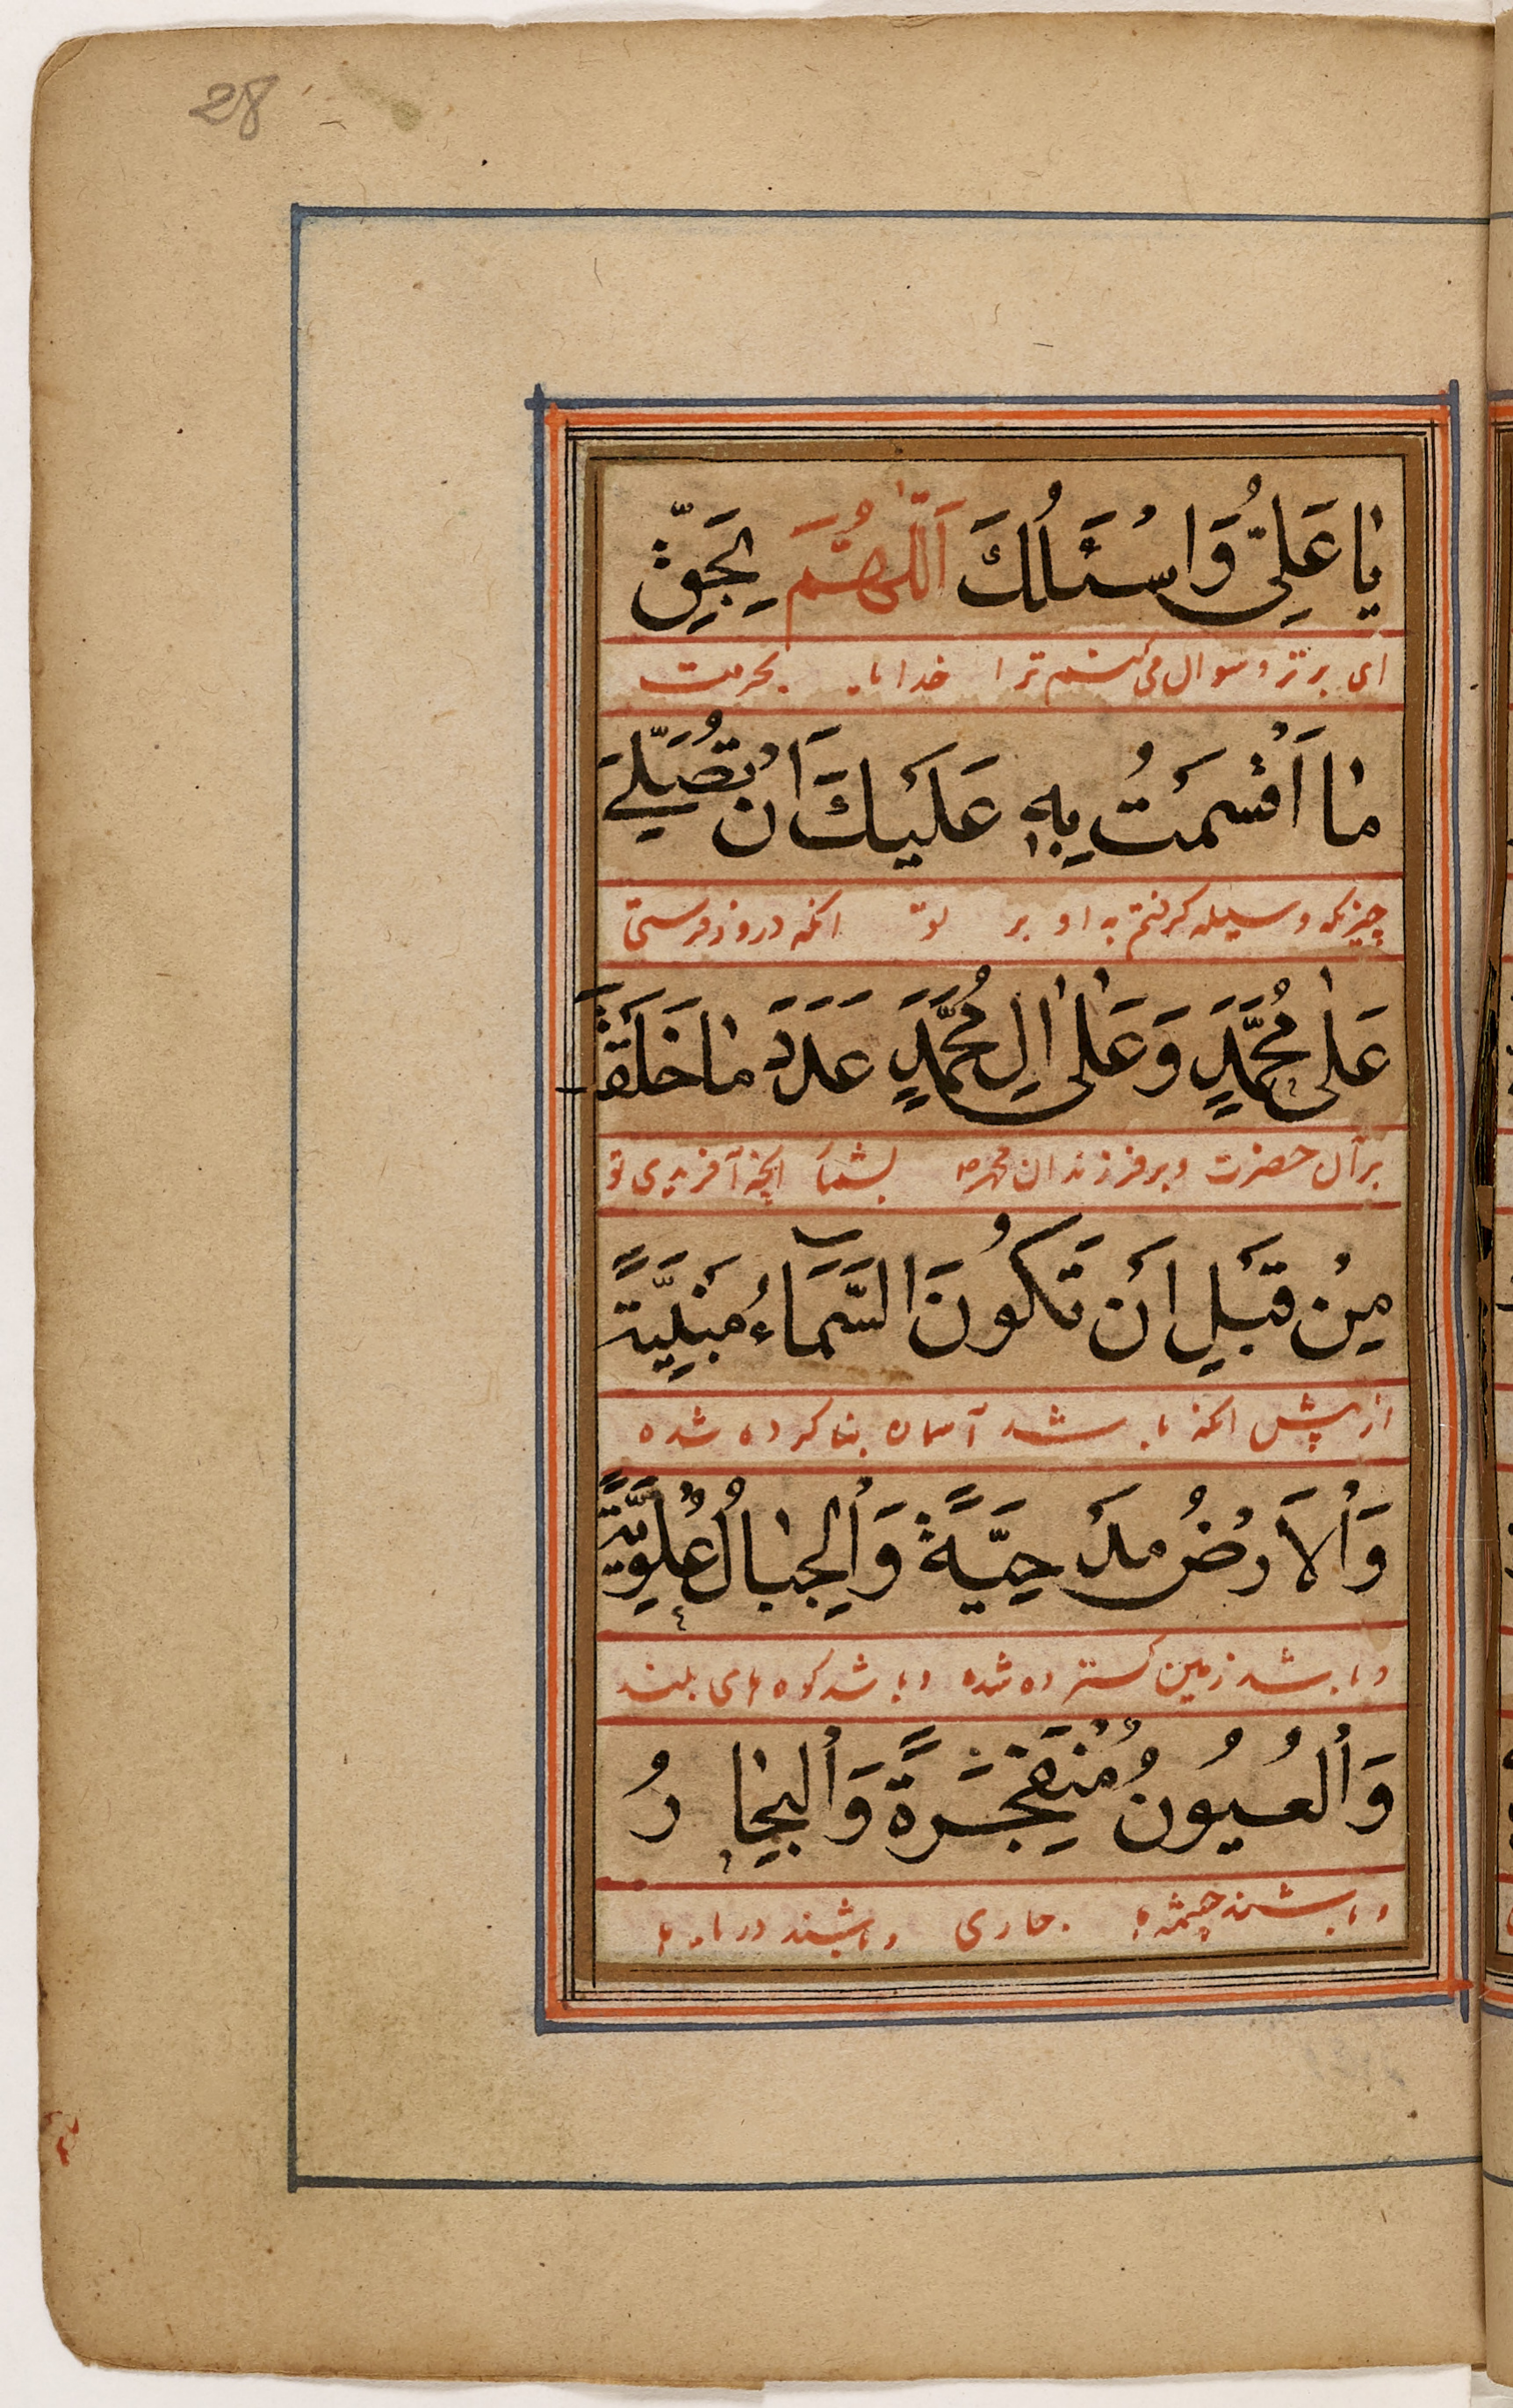 28
يَا عَلِيُّ وَاَسْئَلُكَ اَللّٰهُمَّ بِحَقِّ
ای برتر و سوال می کنم ترا خدایا بحرمت
مٰا اَقْسَمْتُ بِهِ عَلَيْكَ اَنْ تُصَلِّيَ
چیزیکه وسیله گرفتم به او بر تو انکه درود فرستی
عَلٰى مُحَمَّدٍ وَعَلٰى اٰلِ مُحَمَّدٍ عَدَدَ مٰا خَلَقْتَ
بر آن حضرت و بر فرزندان محمد ص بشمار انچه آفریدی تو
مِنْ قَبْلِ اَنْ تَكُونَ السَّمَآءُ مَبْنِيَّةً
از پیش انکه باشد آسمان بنا کرده شده
وَالْاَرْضُ مَدْحِيَّةً وَالْجِبٰالُ عُلْوِيَّةً
و باشد زمین گسترده شده و باشد کوه های بلند
وَالْعُيُونُ مُنْفَجِرَةً وَالْبِحٰارُ
و باشند چشمه ها جاری و باشند دریاها